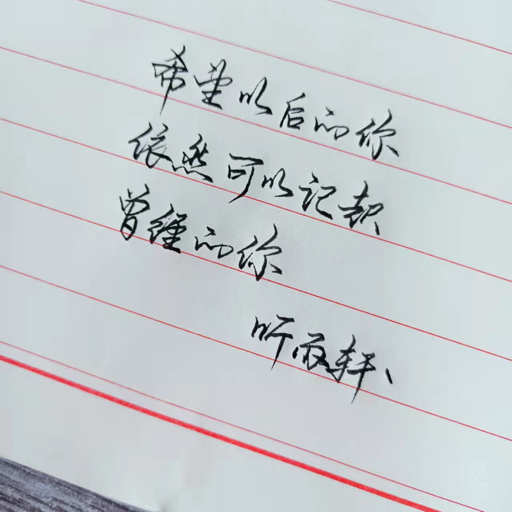 希望以后的你
依然可以记起
曾经的你
听雨轩、